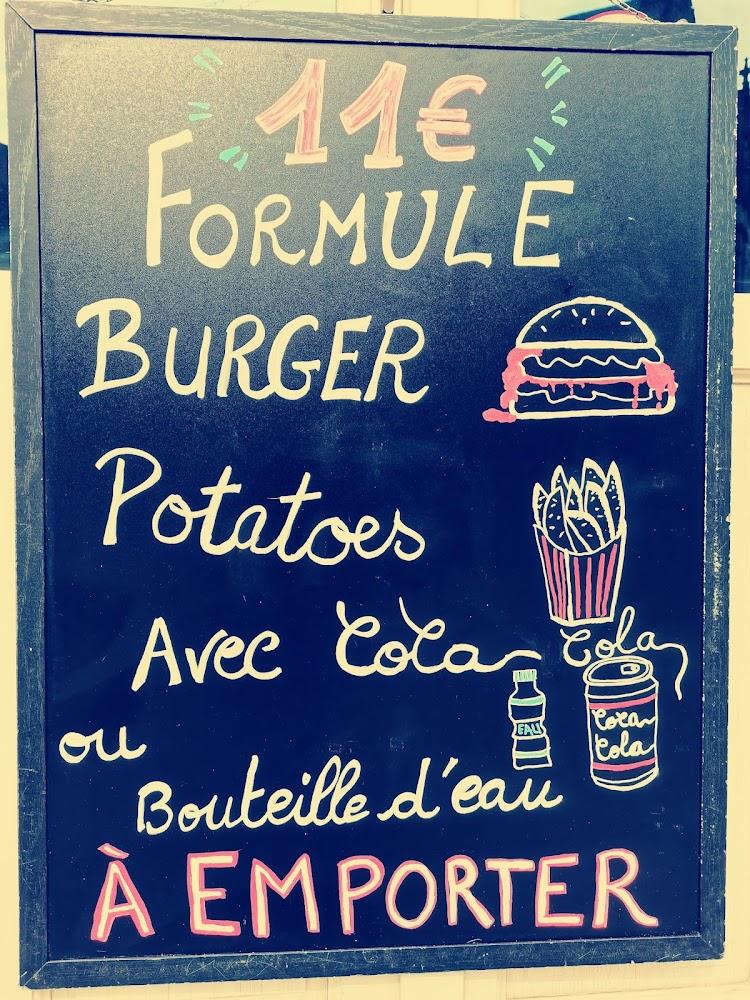 11€
FORMULE
BURGER
Potatoes
Avec Coca Cola
EAU
Coca
Cola
ou
Bouteille d'eau
À EMPORTER